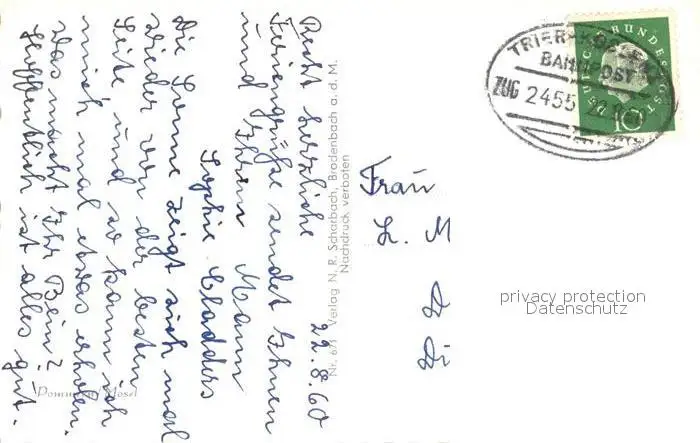 22.8.60
Recht herzliche
Feriengrüße sendet Ihnen
und Ihrem Mann
Sophie Cladders
Die Sonne zeigt sich mal
wieder von der besten
Seite und so kann ich
mich mal etwas erholen.
Was macht Ihr Bein?
Hoffentlich ist alles gut.
Pommern/Mosel
Nr. 671 Verlag N. R. Scharbach, Brodenbach a. d. M.
Nachdruck verboten
TRIER-
BAHNPOST
ZUG 2455 22.8.60
DEUTSCHE BUNDESPOST
10
Frau
L. M
D
Di
privacy protection
Datenschutz